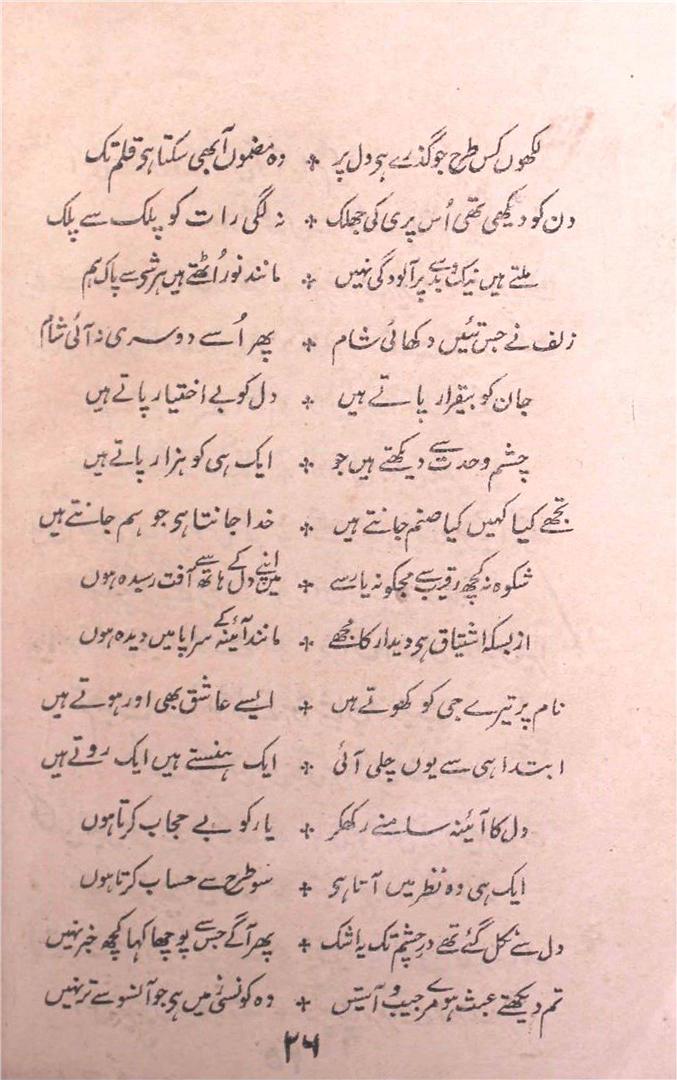 لکھوں کس طرح جو گذرے ہی دل پر ؞ وہ مضمون آبھی سکتا ہی قلم تک
دن کو دیکھی تھی اُس پری کی جھلک ؞ نہ لگی رات کو پلک سے پلک
ملتے ہیں نیک و بد سے پر آلودگی نہیں ؞ مانند نور اُٹھتے ہیں ہر شی سے پاک ہم
زلف نے جس تئیں دکھائی شام ؞ پھر اُسے دوسری نہ آئی شام
جان کو بیقرار پاتے ہیں ؞ دل کو بے اختیار پاتے ہیں
چشم وحدت سے دیکھتے ہیں جو ؞ ایک ہی کو ہزار پاتے ہیں
تجھے کیا کہیں کیا صنم جانتے ہیں ؞ خدا جانتا ہی جو ہم جانتے ہیں
شکوہ نہ کچھ رقیب سے مجکو نہ یار سے ؞ میں اپنے دل کے ہاتھ سے آفت رسیدہ ہوں
از بسکہ اشتیاق ہی دیدار کا مجھے ؞ مانند آئنہ کے سراپا میں دیدہ ہوں
نام پر تیرے جی کو کھوتے ہیں ؞ ایسے عاشق بھی اور ہوتے ہیں
ابتدا ہی سے یوں چلی آئی ؞ ایک ہنستے ہیں ایک روتے ہیں
دل کا آئنہ سامنے رکھکر ؞ یار کو بے حجاب کرتا ہوں
ایک ہی وہ نظر میں آتا ہی ؞ سو طرح سے حساب کرتا ہوں
دل سے نکل گئے تھے در چشم تک یہ اشک ؞ پھر آگے جس سے پوچھا کہا کچھ خبر نہیں
تم دیکھتے عبث ہو مرے جیب و آستیں ؞ وہ کونسی ہی جو آنسو سے تر نہیں
۲۶